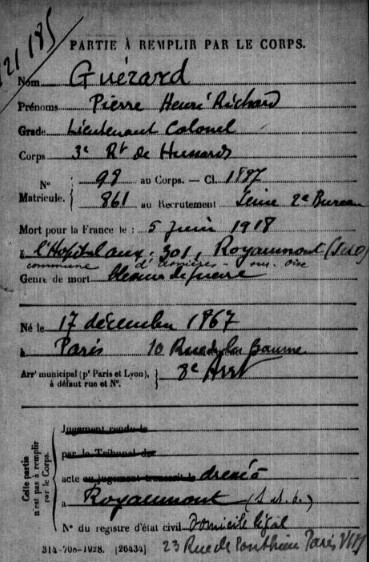 121185
PARTIE À REMPLIR PAR LE CORPS.
Nom Guérard
Prénoms Pierre Henri Richard
Grade Lieutenant Colonel
Corps 3e Rt de Hussards
N° Matricule. 98 au Corps. — Cl. 1887
861 au Recrutement Seine 2e Bureau
Mort pour la France le 5 juin 1918
à l'Hopital aux. 301, Royaumont (S et O)
commune d'Asnières - sur - Oise
Genre de mort blessures de guerre
Né le 17 décembre 1867
à Paris 10 Rue de la Baume
Arrt municipal (pr Paris et Lyon), à défaut rue et N°. 8e Arrt
Cette partie n'est pas à remplir par le Corps.
Jugement rendu le
par le Tribunal de
acte ou jugement transcrit le dressé
à Royaumont (S. et O.)
N° du registre d'état civil Domicile légal
23 Rue de Ponthieu Paris VIII
314-708-1928. [26434]